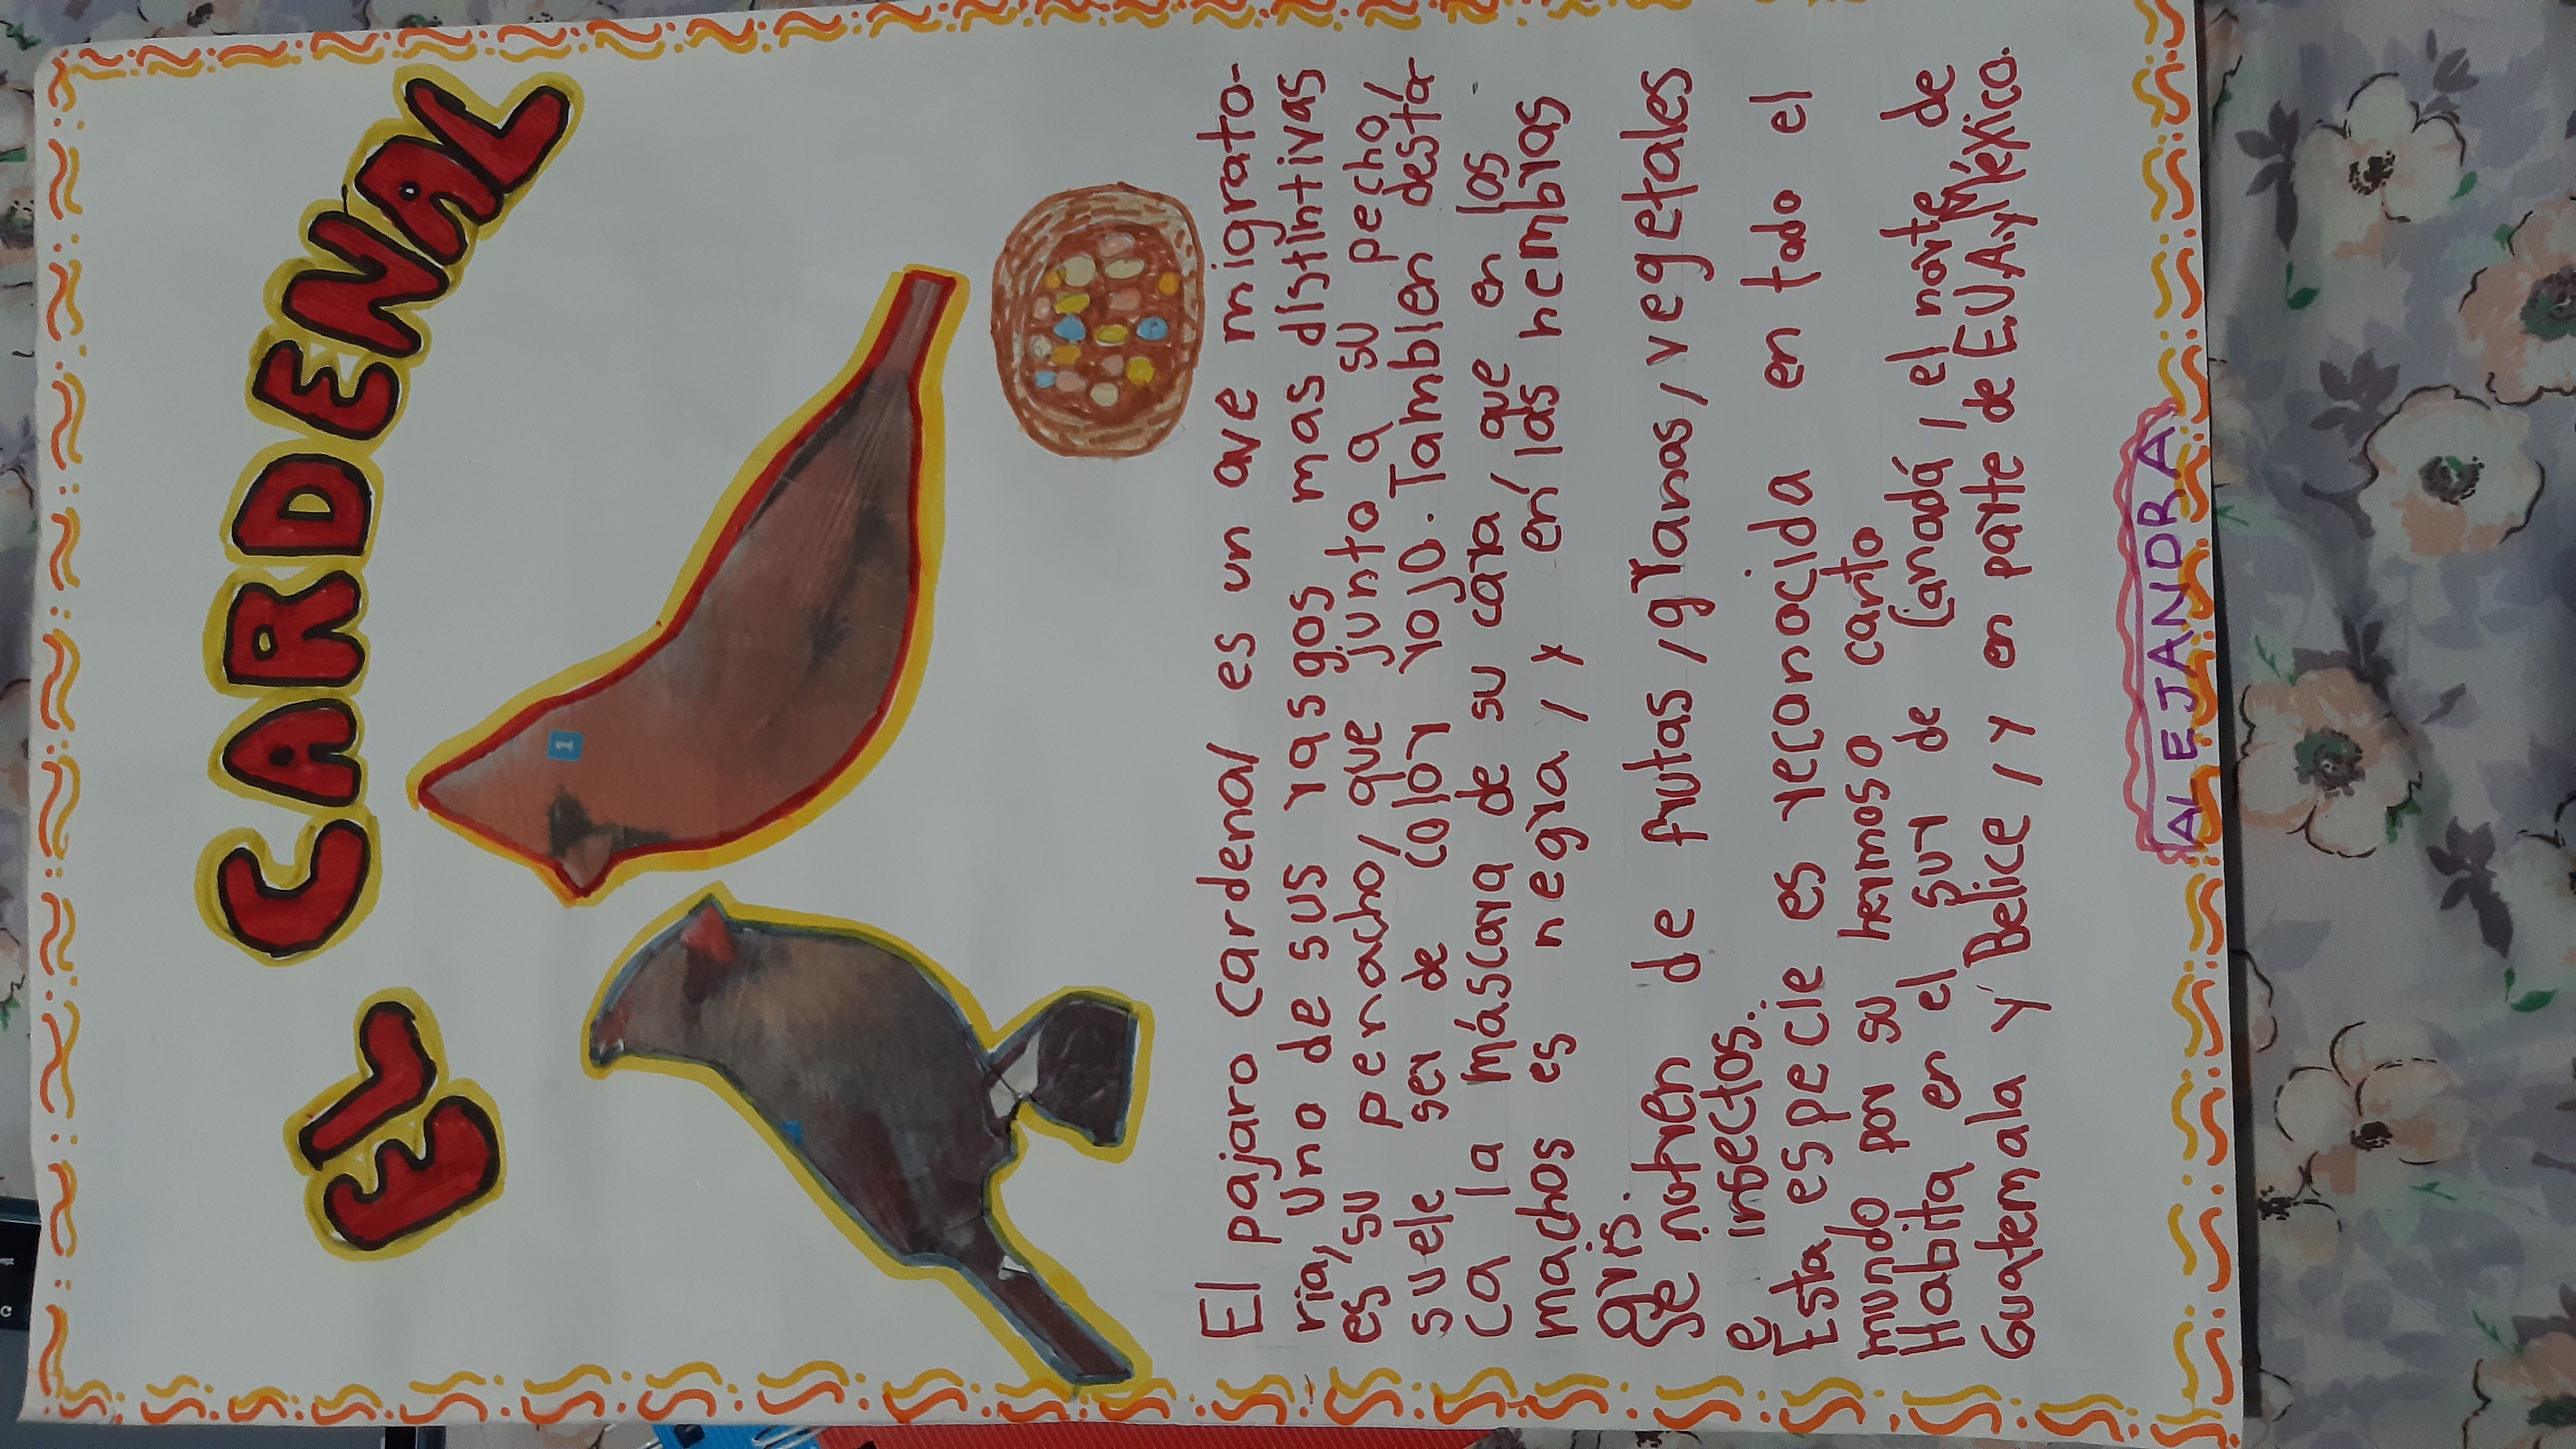 EL CARDENAL
1
El pajaro cardenal es un ave migrato-
ria, uno de sus rasgos mas distintivas
es su penacho, que junto a su pecho,
suele ser de color rojo. Tambien desta-
ca la máscara de su cara, que en los
machos es negra, y en las hembras
gris.
Se notren de frutas, granos, vegetales
e insectos.
Esta especie es reconocida en todo el
mundo por su hermoso canto
Habita en el sur de Canadá, el norte de
Guatemala y Belice, y en parte de E.U.A y México.
ALEJANDRA